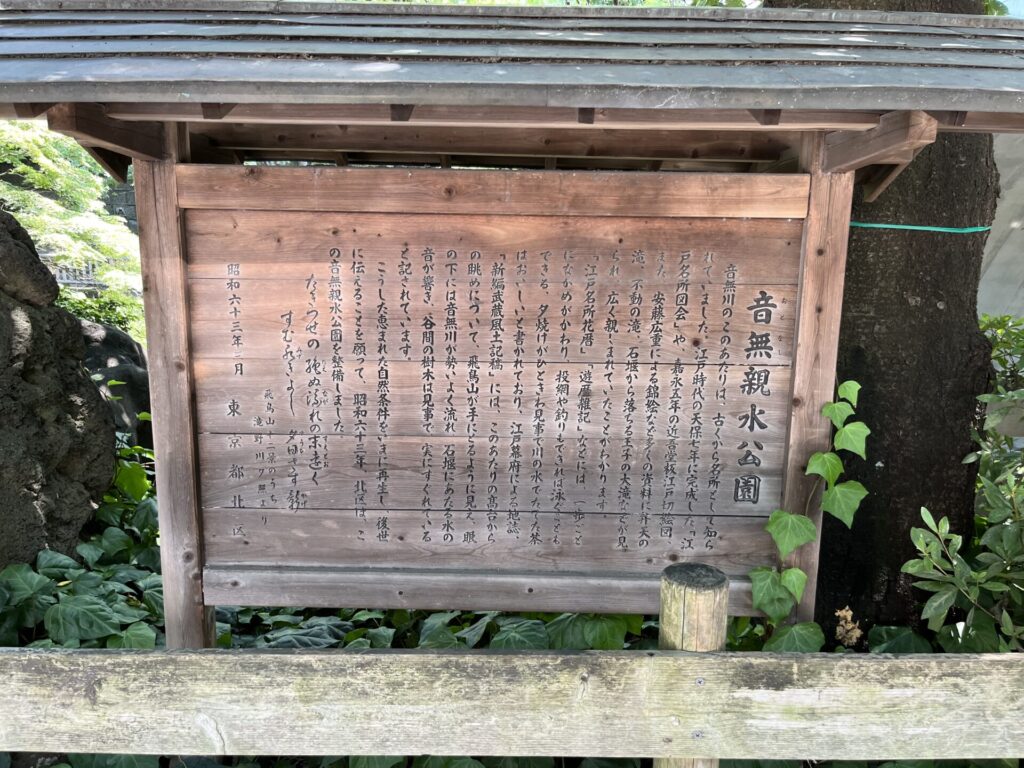 おとなし
音無親水公園
音無川のこのあたりは、古くから名所として知ら
れていました。江戸時代の天保七年に完成した「江
戸名所図会」や、嘉永五年の近吾堂板江戸切絵図、
また、安藤広重による錦絵など多くの資料に弁天の
滝、不動の滝、石堰から落ちる王子の大滝などが見
られ、広く親しまれていたことがわかります。
「江戸名所花暦」「遊歴雑記」などには、一歩ごと
になかめがかわり、投網や釣りもできれば泳ぐことも
できる、夕焼けがひときわ見事で川の水でたてた茶
はおいしいと書かれており、江戸幕府による地誌、
「新編武蔵風土記稿」には、このあたりの高台から
の眺めについて、飛鳥山が手にとるように見え、眼
の下には音無川が勢いよく流れ、石堰にあたる水の
音が響き、谷間の樹木は見事で、実にすぐれている
と記されています。
こうした恵まれた自然条件をいまに再生し、後世
に伝えることを願って、昭和六十三年、北区は、こ
の音無親水公園を整備しました。
たきつせの 絶ぬ流れの末遠く
すむ水きよし 夕日さす影
飛鳥山十二景のうち
滝野川夕照より
昭和六十三年三月 東京都北区